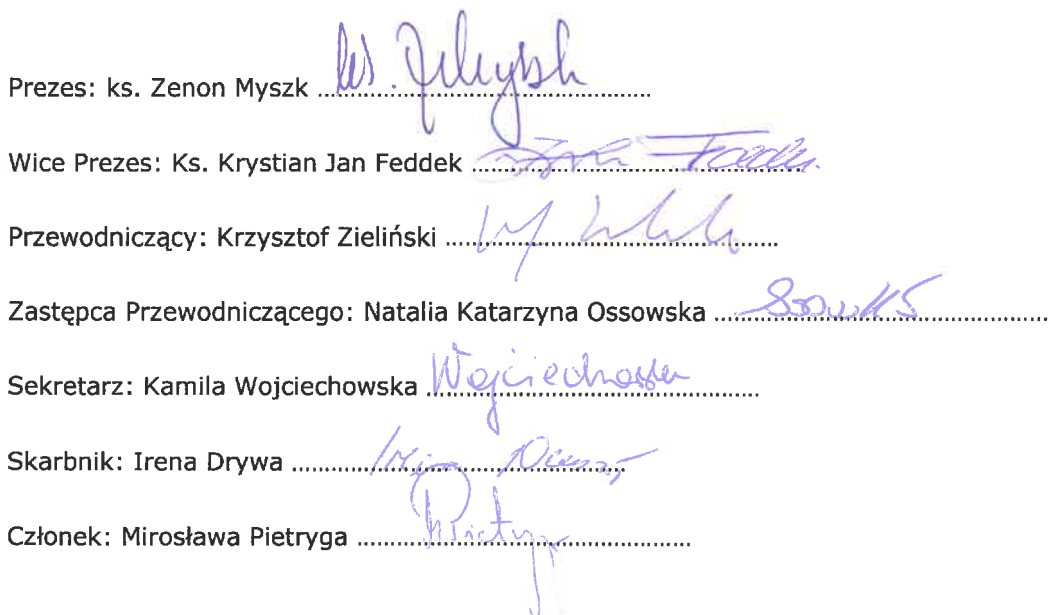 Prezes: ks. Zenon Myszk ........ ks.
Wice Prezes: Ks. Krystian Jan Feddek ........
Przewodniczący: Krzysztof Zieliński ........
Zastępca Przewodniczącego: Natalia Katarzyna Ossowska ........
Sekretarz: Kamila Wojciechowska ........ Wojciechowska
Skarbnik: Irena Drywa ........
Członek: Mirosława Pietryga ........